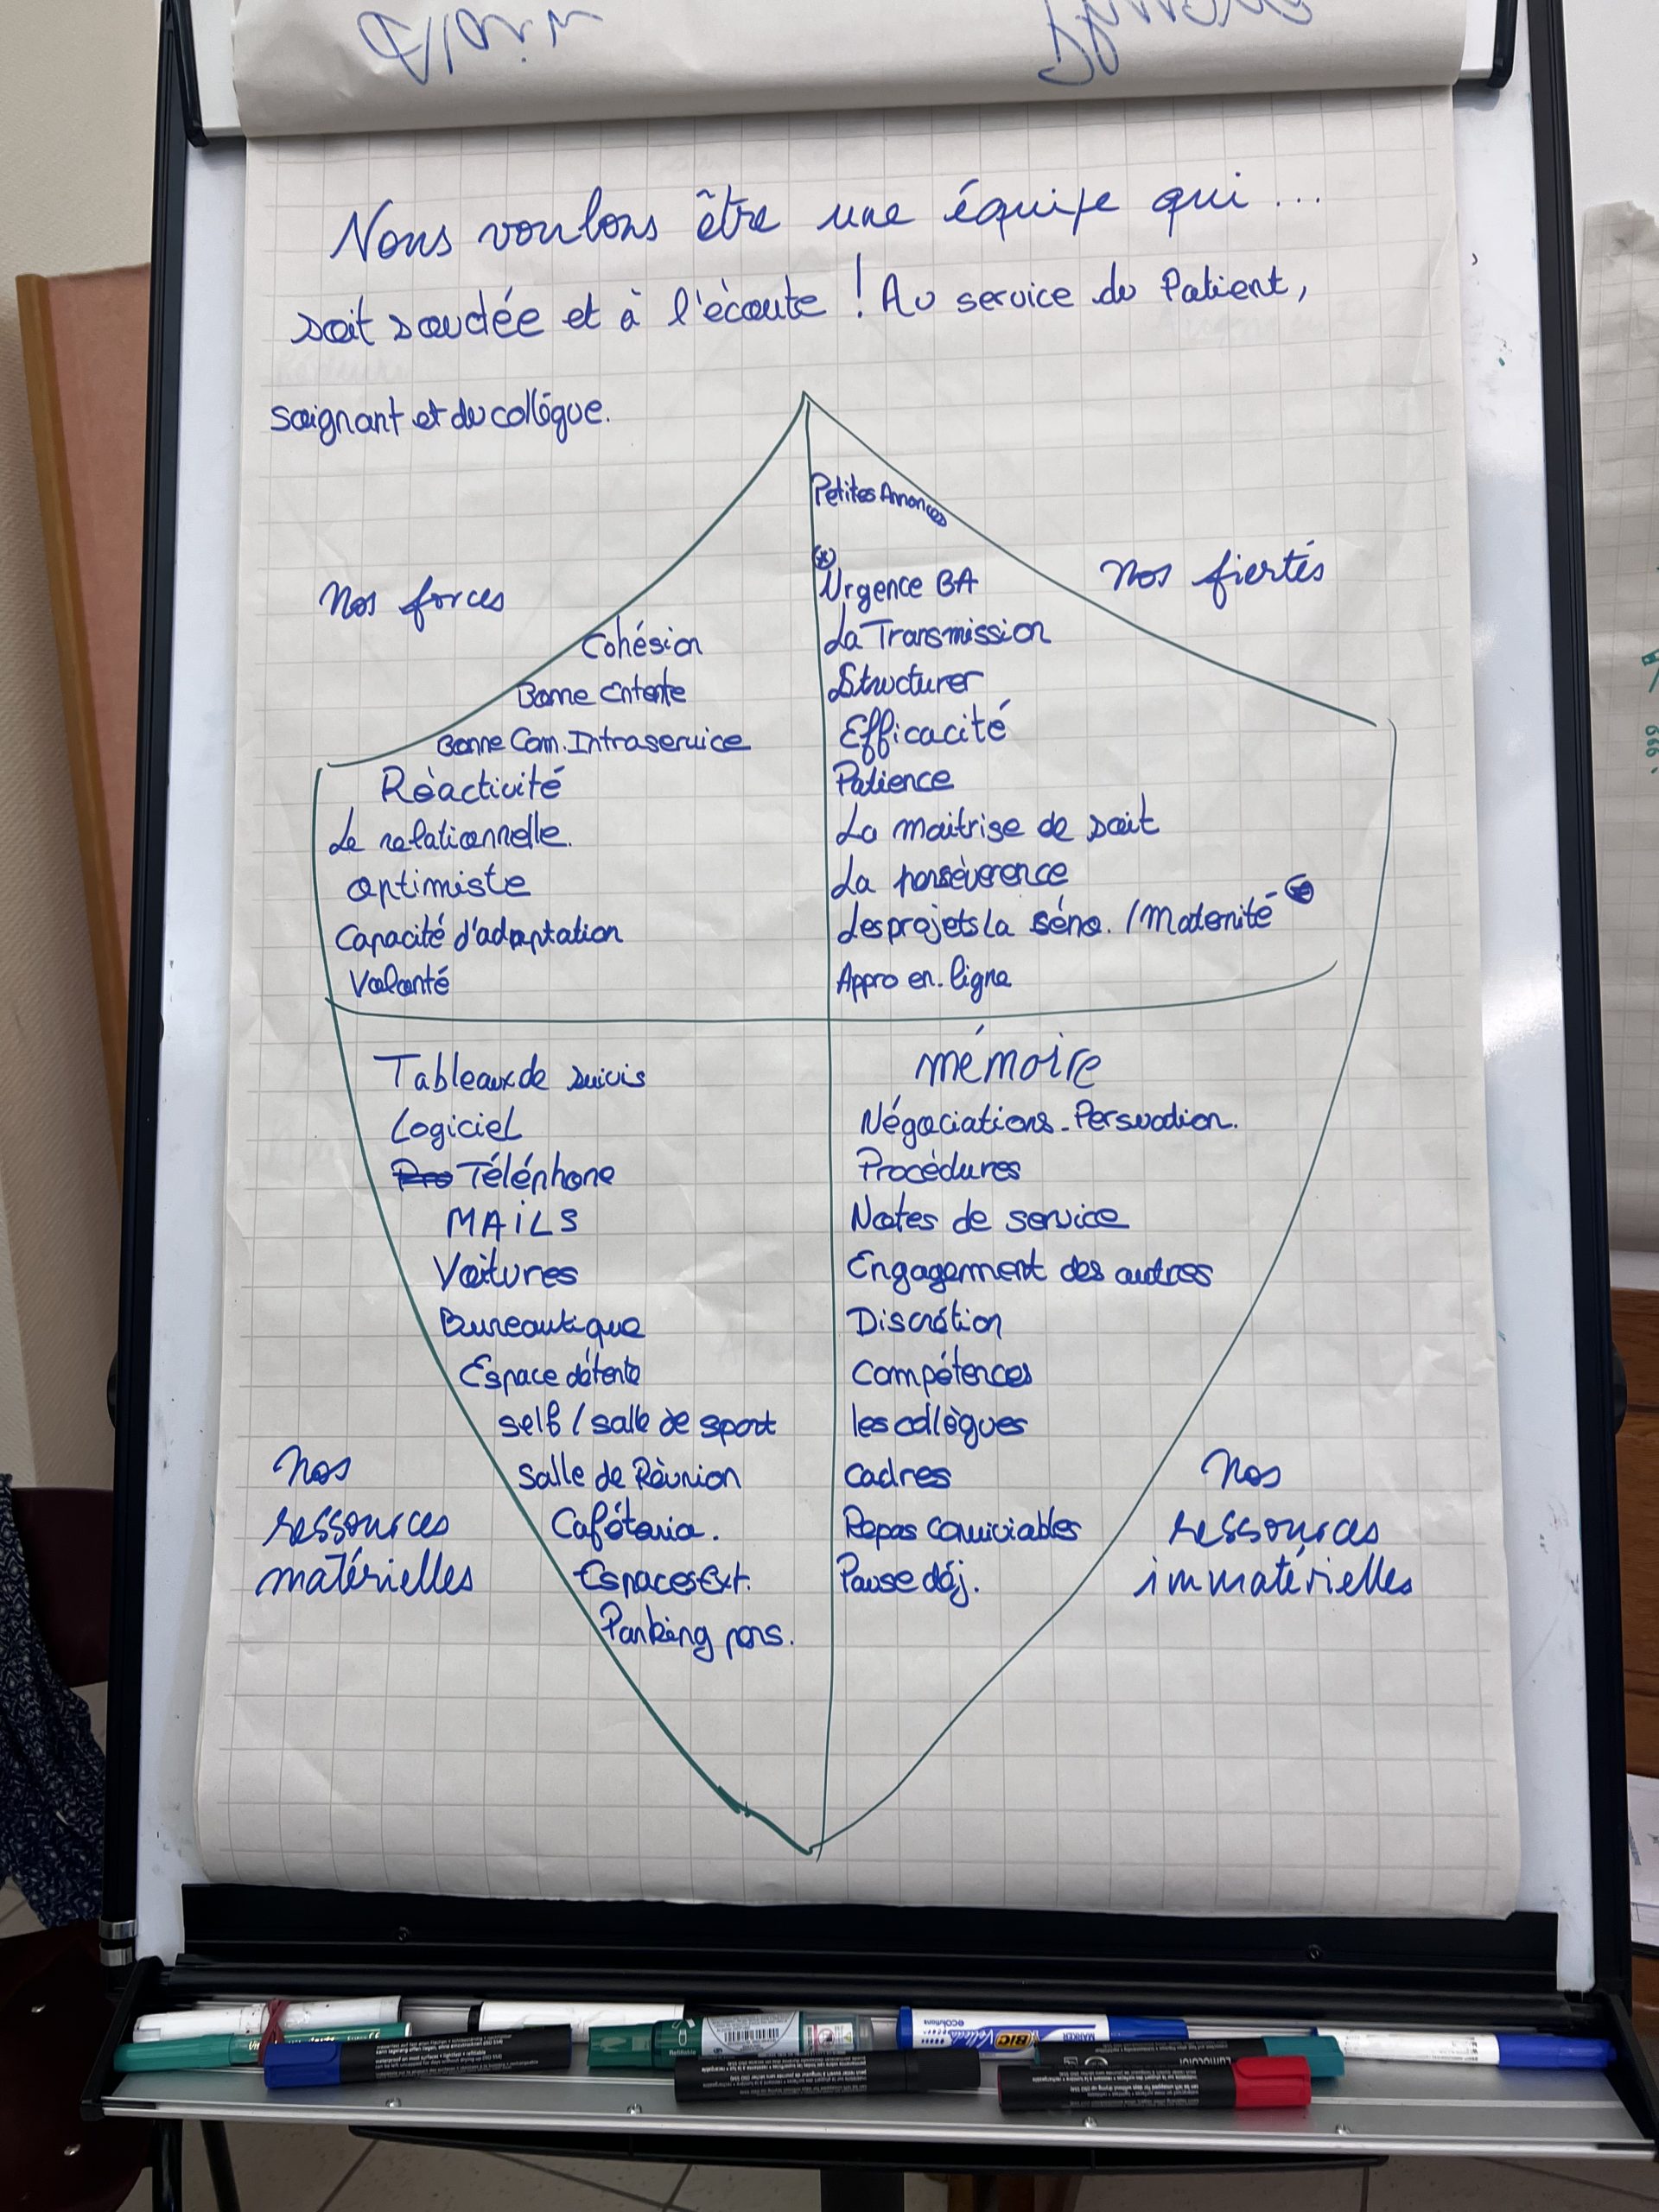 Nous voulons être une équipe qui ...
soit soudée et à l'écoute ! Au service du Patient,
soignant et du collègue.
Petites Annonces
Nos forces
Nos fiertés
Cohésion
Bonne Entente
Bonne Com. Intraservice
Réactivité
Le relationnelle.
optimiste
Capacité d'adaptation
Volonté
Urgence BA
La Transmission
Structurer
Efficacité
Patience
La maitrise de soit
La persévérence
Les projets La séno. / Maternité
Appro en. ligne
Tableaux de suivis
Logiciel
Téléphone
MAiLS
Voitures
Bureautique
Espace détente
self / salle de sport
Salle de Réunion
Cafétéria.
Espaces Ext.
Parking pers.
Nos
ressources
matérielles
mémoire
Négociations - Persuadion.
Procédures
Notes de service
Engagement des autres
Discrétion
Compétences
les collègues
Cadres
Repas conviviables
Pause déj.
Nos
ressources
immatérielles
BIC Velleda
MARKER
ecolutions